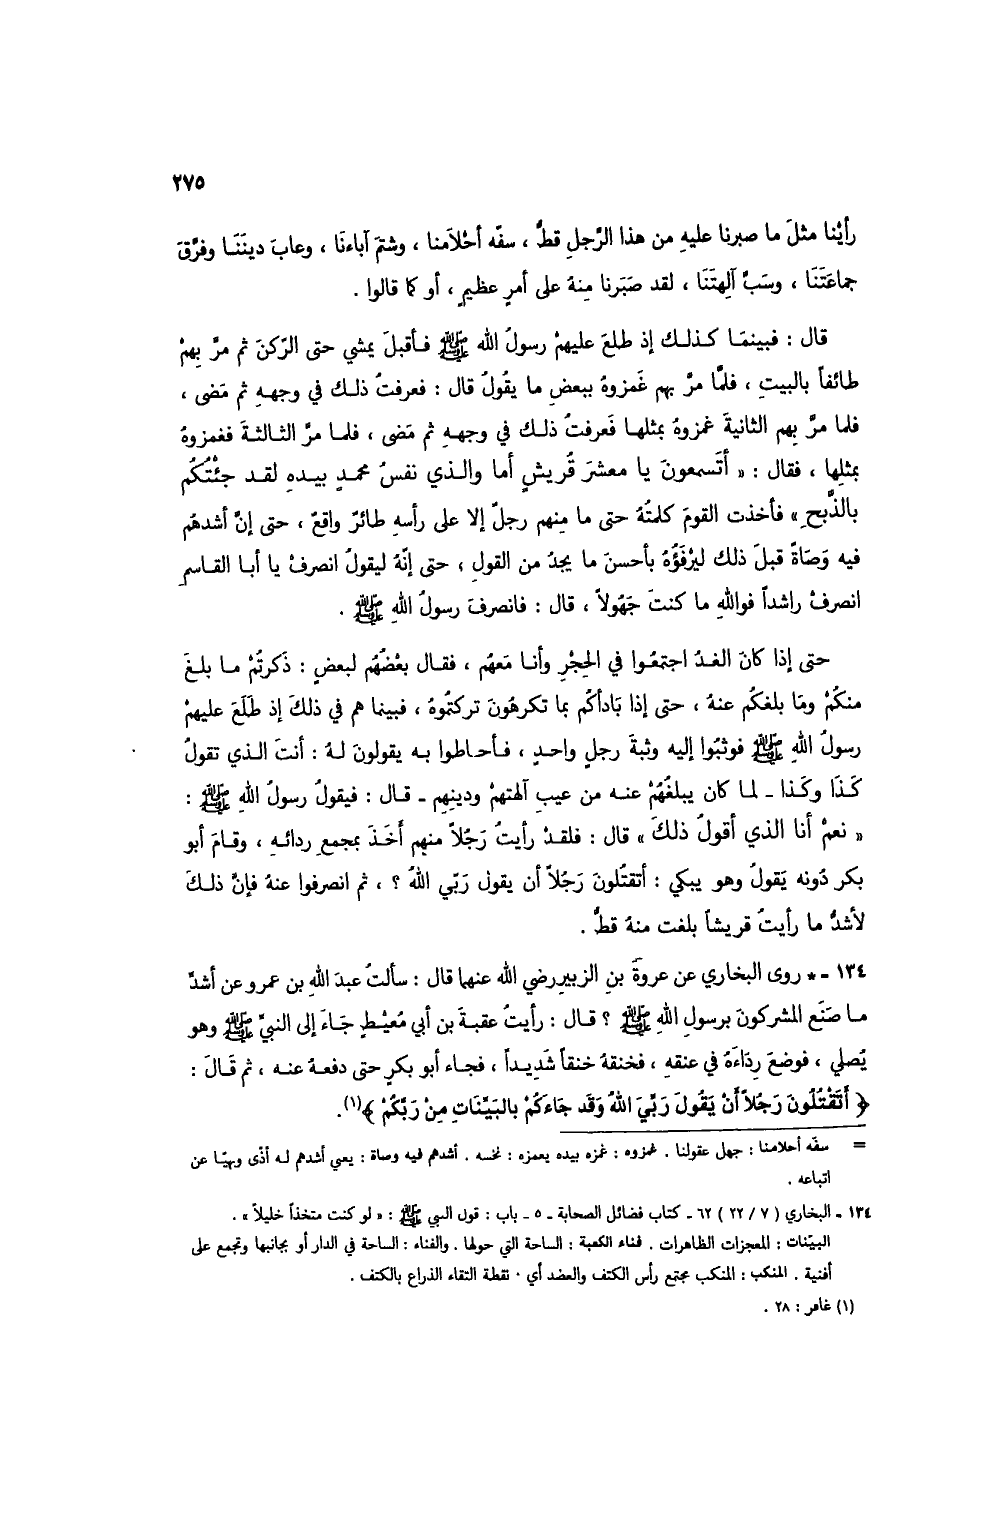 ٢٧٥
رأيْنا مثلَ ما صبرنا عليهِ من هذا الرَّجلِ قطُّ ، سفّه أحْلاَمنا ، وشتمَ آباءنَا ، وعابَ دينَنَا وفرَّقَ
جماعَتَنَا ، وسَبَّ آلِهتَنَا ، لقد صَبَرنا مِنهُ على أمرٍ عظيمٍ ، أو كما قالوا .
قال : فبينمَا كذلك إذ طلعَ عليهمْ رسولُ الله ﷺ فأقبلَ يمشي حتى الرّكنَ ثم مرَّ بِهمْ
طائفاً بالبيتِ ، فلمَّا مرَّ بهم غَمزوهُ ببعضِ ما يقُولُ قال : فعرفتُ ذلك في وجههِ ثم مَضى ،
فلما مرَّ بِهم الثانيةَ غمزوهُ بمثلها فَعرفتُ ذلك في وجههِ ثم مَضى ، فلما مرَّ الثالثةَ فغمزوهُ
بمثلِها ، فقال : « أتَسمعونَ يا معشرَ قُريشٍ أما والذي نفسُ محمدٍ بيدهِ لقد جئْتُكُم
بالذَّبحِ » فأخذت القومَ كلمتُهُ حتى ما مِنهم رجلٌ إلا على رأسهِ طائرٌ واقعٌ ، حتى إنَّ أشدهُم
فيه وَصَاةً قبلَ ذلك ليْرْفَؤُهُ بأحسنَ ما يجدُ من القولِ ، حتى إنّهُ ليقولُ انصرفْ يا أبا القاسمِ
انصرفْ راشداً فواللهِ ما كنتَ جَهُولاً ، قال : فانصرفَ رسولُ اللهِ ﷺ .
حتى إذا كانَ الغدُ اجتمعُوا في الحِجْرِ وأنا مَعهُم ، فقال بعْضُهُم لبعضٍ : ذَكرتُمْ ما بلغَ
منكُمْ ومَا بلغكُم عنهُ ، حتى إذا بَادأكُم بما تكرهُونَ تركتمُوهُ ، فبينما هم في ذلكَ إذ طَلَعَ عليهمْ
رسولُ اللهِ ﷺ فوثبُوا إليه وثبةَ رجلٍ واحدٍ ، فأحاطوا به يقولونَ لهُ : أنتَ الذي تقولُ
كَذَا وكَذا ـ لما كان يبلغُهُمْ عنه من عيبِ آلهتهمْ ودينهِم ـ قال : فيقولُ رسولُ اللهِ ﷺ :
« نعمْ أنا الذي أقولُ ذلكَ » قال : فلقدْ رأيتُ رَجُلاً منهم أَخَذَ بمجمعِ ردائهِ ، وقامَ أبو
بكر دُونه يَقولُ وهو يبكي : أتقتُلونَ رَجُلاً أن يقول رَبّي اللهُ ؟ ، ثم انصرفوا عنهُ فإنَّ ذلكَ
لأشدُّ ما رأيتُ قريشاً بلغت منهُ قطُّ .
١٣٤ ـ * روى البخاري عن عروةَ بنِ الزبيرِرضي الله عنهما قال : سألتُ عبدَ اللهِ بن عمرو عن أشدِّ
ما صَنَع المشركونَ برسولِ اللهِ ﷺ ؟ قال : رأيتُ عقبةَ بن أبي مُعيْطٍ جَاءَ إلى النبيِّ ﷺ وهو
يُصلي ، فوضعَ رِدَاءَهُ في عنقهِ ، فخنقهُ خنقاً شَدِيداً ، فجاء أبو بكرٍ حتى دفعهُ عنه ، ثم قَالَ :
﴿ أَتَقْتُلُونَ رَجُلاً أَنْ يَقُولَ رَبِّيَ اللهُ وَقَد جاءَكُمْ بالبَيِّنَاتِ مِنْ رَبِّكُمْ ﴾(١).
= سفّه أحلامنا : جهل عقولنا . غمزوه : غمزه بيده يغمزه : نخسه . أشدهم فيه وصاة : يعني أشدهم له أذًى ونهيًا عن
اتباعه .
١٣٤ ـ البخاري ( ٧ / ٢٢ ) ٦٢ ـ كتاب فضائل الصحابة ـ ٥ ـ باب : قول النبي ﷺ : « لو كنت متخذاً خليلاً » .
البيّنات : المعجزات الظاهرات . فناء الكعبة : الساحة التي حولها . والفناء : الساحة في الدار أو بجانبها وتجمع على
أفنية . المنكب : المنكب مجتمع رأس الكتف والعضد أي : نقطة التقاء الذراع بالكتف .
(١) غافر : ٢٨ .